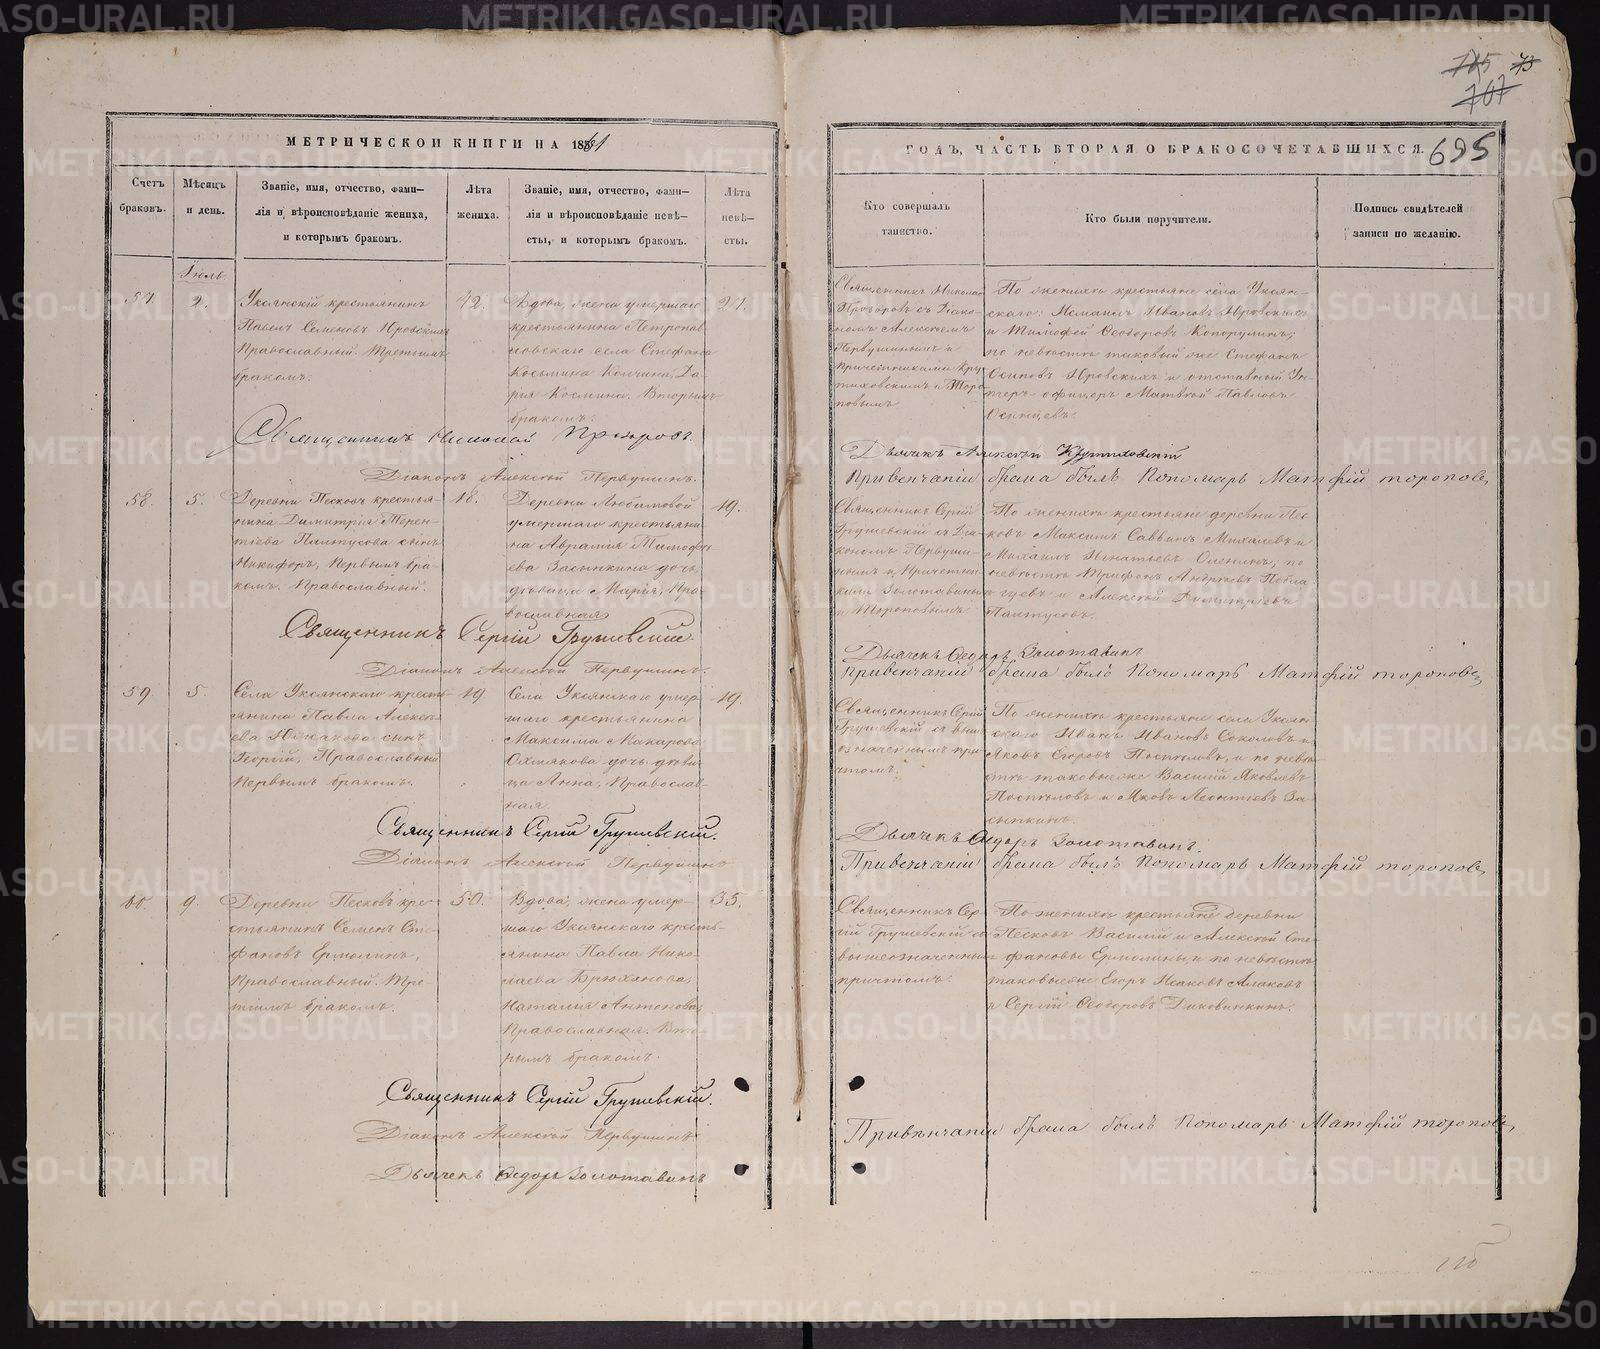 745 73
707
695
МЕТРИЧЕСКОЙ КНИГИ НА 1861
ГОДЪ, ЧАСТЬ ВТОРАЯ О БРАКОСОЧЕТАВШИХСЯ.
Счетъ браковъ.
Мѣсяцъ и день.
Званіе, имя, отчество, фами-
лія и вѣроисповѣданіе жениха,
и которымъ бракомъ.
Лѣта жениха.
Званіе, имя, отчество, фами-
лія и вѣроисповѣданіе невѣ-
сты, и которымъ бракомъ.
Лѣта невѣ-
сты.
Кто совершалъ
таинство.
Кто были поручители.
Подпись свидѣтелей
записи по желанію.
Іюль
57. 2.
Уксянскій крестьянинъ
Павелъ Семеновъ Юровскихъ
Православный. Третьимъ
бракомъ.
42.
Вдова, жена умершаго
крестьянина Петропав
ловскаго села Стефана
Косьмина Колчина, Да-
рія Космина. Вторымъ
бракомъ.
27.
Священникъ Николай
Прозоровъ съ Діако-
номъ Алексѣемъ
Первушинымъ и
причетниками Кру
тиховскимъ и Торо
повымъ
По женихѣ крестьяне села Уксян-
скаго: Исмаилъ Ивановъ Юровскихъ
и Тимофей Ѳеодоровъ Копорулинъ;
по невѣстѣ таковый же Стефанъ
Осиповъ Юровскихъ и отставный Ун-
теръ офицеръ Матвѣй Павловъ
Осинцевъ.
Священникъ Николай Прозоровъ.
Діаконъ Алексѣй Первушинъ.
Дьячекъ Алексѣй Крутиховскій
Привенчаніи брака былъ Пономарь Матфій тороповъ,
58. 5.
Деревни Песковъ крестья-
нина Димитрія Терен-
тіева Пантусова сынъ
Никифоръ, Первымъ бра-
комъ. Православный.
18.
Деревни Любимовой
умершаго крестьяни
на Авраамія Тимофе-
ева Засыпкина дочь,
дѣвица Марія, Пра-
вославная
19.
Священникъ Сергій
Грушевскій съ Діа-
кономъ Первуши-
нымъ и Причетни-
ками Золотавинымъ
и Тороповымъ
По женихѣ крестьяне деревни Пес
ковъ Максимъ Саввинъ Михалевъ и
Михаилъ Игнатьевъ Оленинъ, по
невѣстѣ Трифонъ Андреевъ Павла
гуевъ и Алексѣй Димитріевъ
Пантусовъ.
Священникъ Сергій Грушевскій.
Діаконъ Алексѣй Первушинъ.
Дьячекъ Ѳедоръ Золотавинъ
привенчаніи брака былъ Пономарь Матфій тороповъ,
59. 5.
Села Уксянскаго кресть
янина Павла Алексѣ-
ева Южакова сынъ
Георгій, Православный
Первымъ бракомъ.
19
Села Уксянскаго умер-
шаго крестьянина
Максима Макарова
Охтякова дочь дѣви
ца Анна, Православ-
ная.
19.
Священникъ Сергій
Грушевскій съ выше
означеннымъ при-
чтомъ.
По женихѣ крестьяне села Уксян-
скаго Иванъ Ивановъ Соколовъ и
Яковъ Егоровъ Поспѣловъ, и по невѣ-
стѣ таковые же Василій Яковлевъ
Поспѣловъ и Яковъ Леонтіевъ За-
сыпкинъ.
Священникъ Сергій Грушевскій.
Діаконъ Алексѣй Первушинъ
Дьячекъ Ѳедоръ Золотавинъ.
Привенчаніи брака былъ Пономарь Матфій тороповъ,
60. 9.
Деревни Песковъ кре-
стьянинъ Семенъ Сте-
фановъ Ермолинъ,
Православный. Тре-
тіимъ бракомъ.
50.
Вдова, жена умер-
шаго Уксянскаго кресть-
янина Павла Нико-
лаева Брюханова,
Наталія Антонова,
Православная. Вто-
рымъ бракомъ.
35.
Священникъ Сер-
гій Грушевскій съ
вышеозначеннымъ
причтомъ.
По женихѣ крестьяне деревни
Песковъ Василій и Алексѣй Сте-
фановы Ермолины, и по невѣстѣ
таковые же Егоръ Исаковъ Алаковъ
и Сергій Ѳеодоровъ Диковинкинъ.
Священникъ Сергій Грушевскій.
Діаконъ Алексѣй Первушинъ
Дьячекъ Ѳедоръ Золотавинъ
Привѣнчаніи брака былъ Пономарь Матфій тороповъ,
METRIKI.GASO-URAL.RU